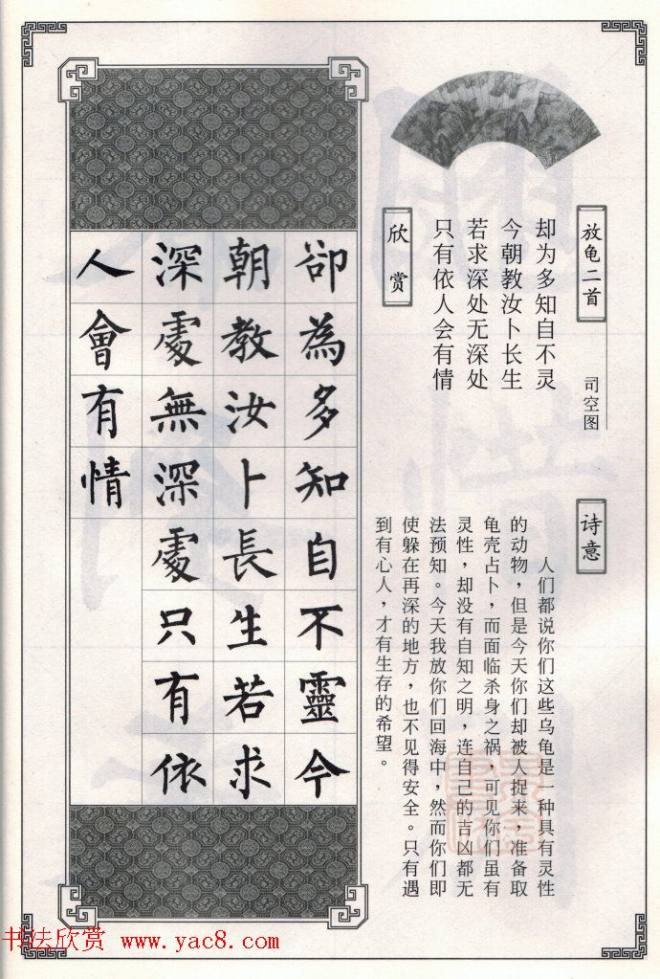 放龟二首
司空图
却为多知自不灵
今朝教汝卜长生
若求深处无深处
只有依人会有情
欣赏
诗意
人们都说你们这些乌龟是一种具有灵性
的动物，但是今天你们却被人捉来，准备取
龟壳占卜，而面临杀身之祸，可见你们虽有
灵性，却没有自知之明，连自己的吉凶都无
法预知。今天我放你们回海中，然而你们即
使躲在再深的地方，也不见得安全。只有遇
到有心人，才有生存的希望。
卻為多知自不靈今
朝教汝卜長生若求
深處無深處只有依
人會有情
书法欣赏 www.yac8.com